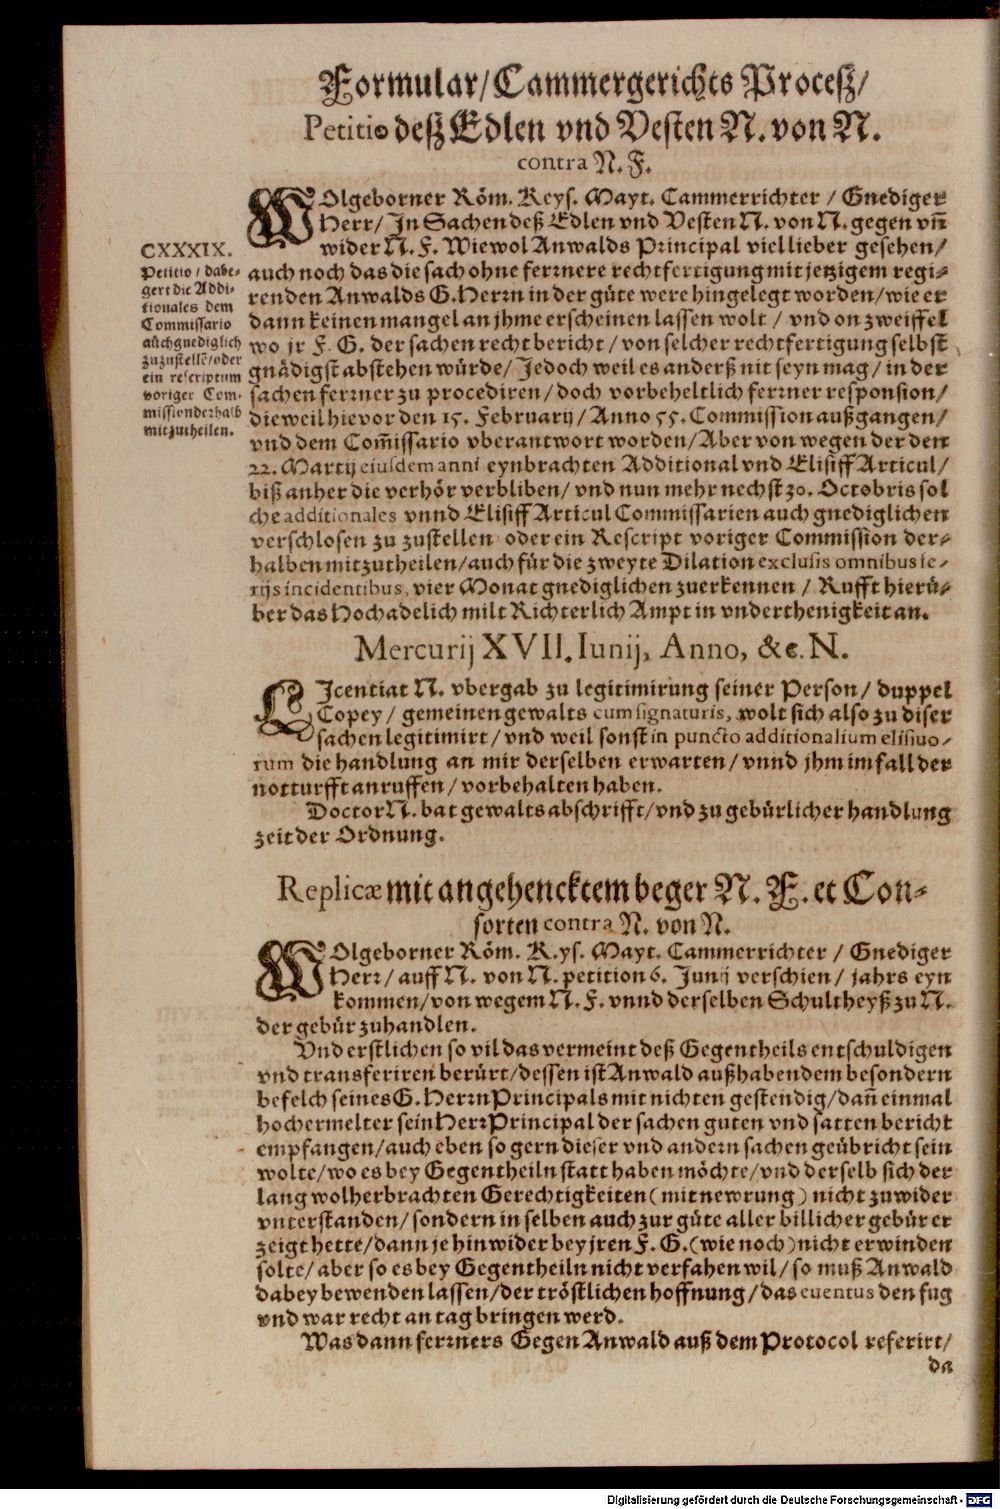 Formular/Cammergerichts Proceß/
Petitio deß Edlen vnd Vesten N. von N.
contra N. F.
WOlgeborner Röm. Keys. Mayt. Cammerrichter / Gnediger
Herr/ In Sachen deß Edlen vnd Vesten N. von N. gegen vñ
wider N. F. Wiewol Anwalds Principal viel lieber gesehen/
auch noch das die sach ohne ferrnere rechtfertigung mit jetzigem regi-
renden Anwalds G. Herrn in der güte were hingelegt worden/ wie er
dann keinen mangel an jhme erscheinen lassen wolt / vnd on zweiffel
wo jr F. G. der sachen recht bericht / von selcher rechtfertigung selbst
gnädigst abstehen würde/ Jedoch weil es anderß nit seyn mag/ in der
sachen ferrner zu procediren/ doch vorbeheltlich ferrner responsion/
die weil hievor den 15. February/ Anno 55. Commission außgangen/
vnd dem Com̃issario vberantwort worden/ Aber von wegen der den
22. Martij eiusdem anni eynbrachten Additional vnd Elisiff Articul/
biß anher die verhör verbliben/ vnd nun mehr nechst 30. Octobris sol
che additionales vnnd Elisiff Articul Commissarien auch gnediglichen
verschlosen zu zustellen oder ein Rescript voriger Commission der-
halben mitzutheilen/ auch für die zweyte Dilation exclusis omnibus fe-
rijs incidentibus, vier Monat gnediglichen zuerkennen / Rufft hierü-
ber das Hochadelich milt Richterlich Ampt in vnderthenigkeit an.
CXXXIX.
Petitio / dabe-
gert die Addi-
tionales dem
Commissario
auch gnediglich
zuzustellẽ/oder
ein rescriptum
voriger Com-
mission derhalb
mitzutheilen.
Mercurij XVII. Iunij, Anno, &c. N.
LIcentiat N. vbergab zu legitimirung seiner Person/ duppel
Copey / gemeinen gewalts cum signaturis, wolt sich also zu diser
sachen legitimirt/ vnd weil sonst in puncto additionalium elisiuo-
rum die handlung an mir derselben erwarten/ vnnd jhm im fall der
notturfft anruffen/ vorbehalten haben.
Doctor N. bat gewalts abschrifft/ vnd zu gebürlicher handlung
zeit der Ordnung.
Replicæ mit angehencktem beger N. F. et Con-
sorten contra N. von N.
WOlgeborner Röm. K.ys. Mayt. Cammerrichter / Gnediger
Herr/ auff N. von N. petition 6. Junij verschien/ jahrs eyn
kommen/ von wegem N. F. vnnd derselben Schultheyß zu N.
der gebür zuhandlen.
Vnd erstlichen so vil das vermeint deß Gegentheils entschuldigen
vnd transferiren berürt/ dessen ist Anwald auß habendem besondern
befelch seines G. Herrn Principals mit nichten gestendig/ dañ einmal
hochermelter sein Herr Principal der sachen guten vnd satten bericht
empfangen/ auch eben so gern dieser vnd andern sachen geübricht sein
wolte/ wo es bey Gegentheiln statt haben möchte/ vnd derselb sich der
lang wolherbrachten Gerechtigkeiten ( mit newrung ) nicht zuwider
vnterstanden/ sondern in selben auch zur güte aller billicher gebür er
zeigt hette/ dann je hinwider bey jren F. G. ( wie noch ) nicht erwinden
solte/ aber so es bey Gegentheiln nicht verfahen wil/ so muß Anwald
dabey bewenden lassen/ der tröstlichen hoffnung/ das euentus den fug
vnd war recht an tag bringen werd.
Was dann ferrners Gegen Anwald auß dem Protocol referirt/
da
Digitalisierung gefördert durch die Deutsche Forschungsgemeinschaft - DFG